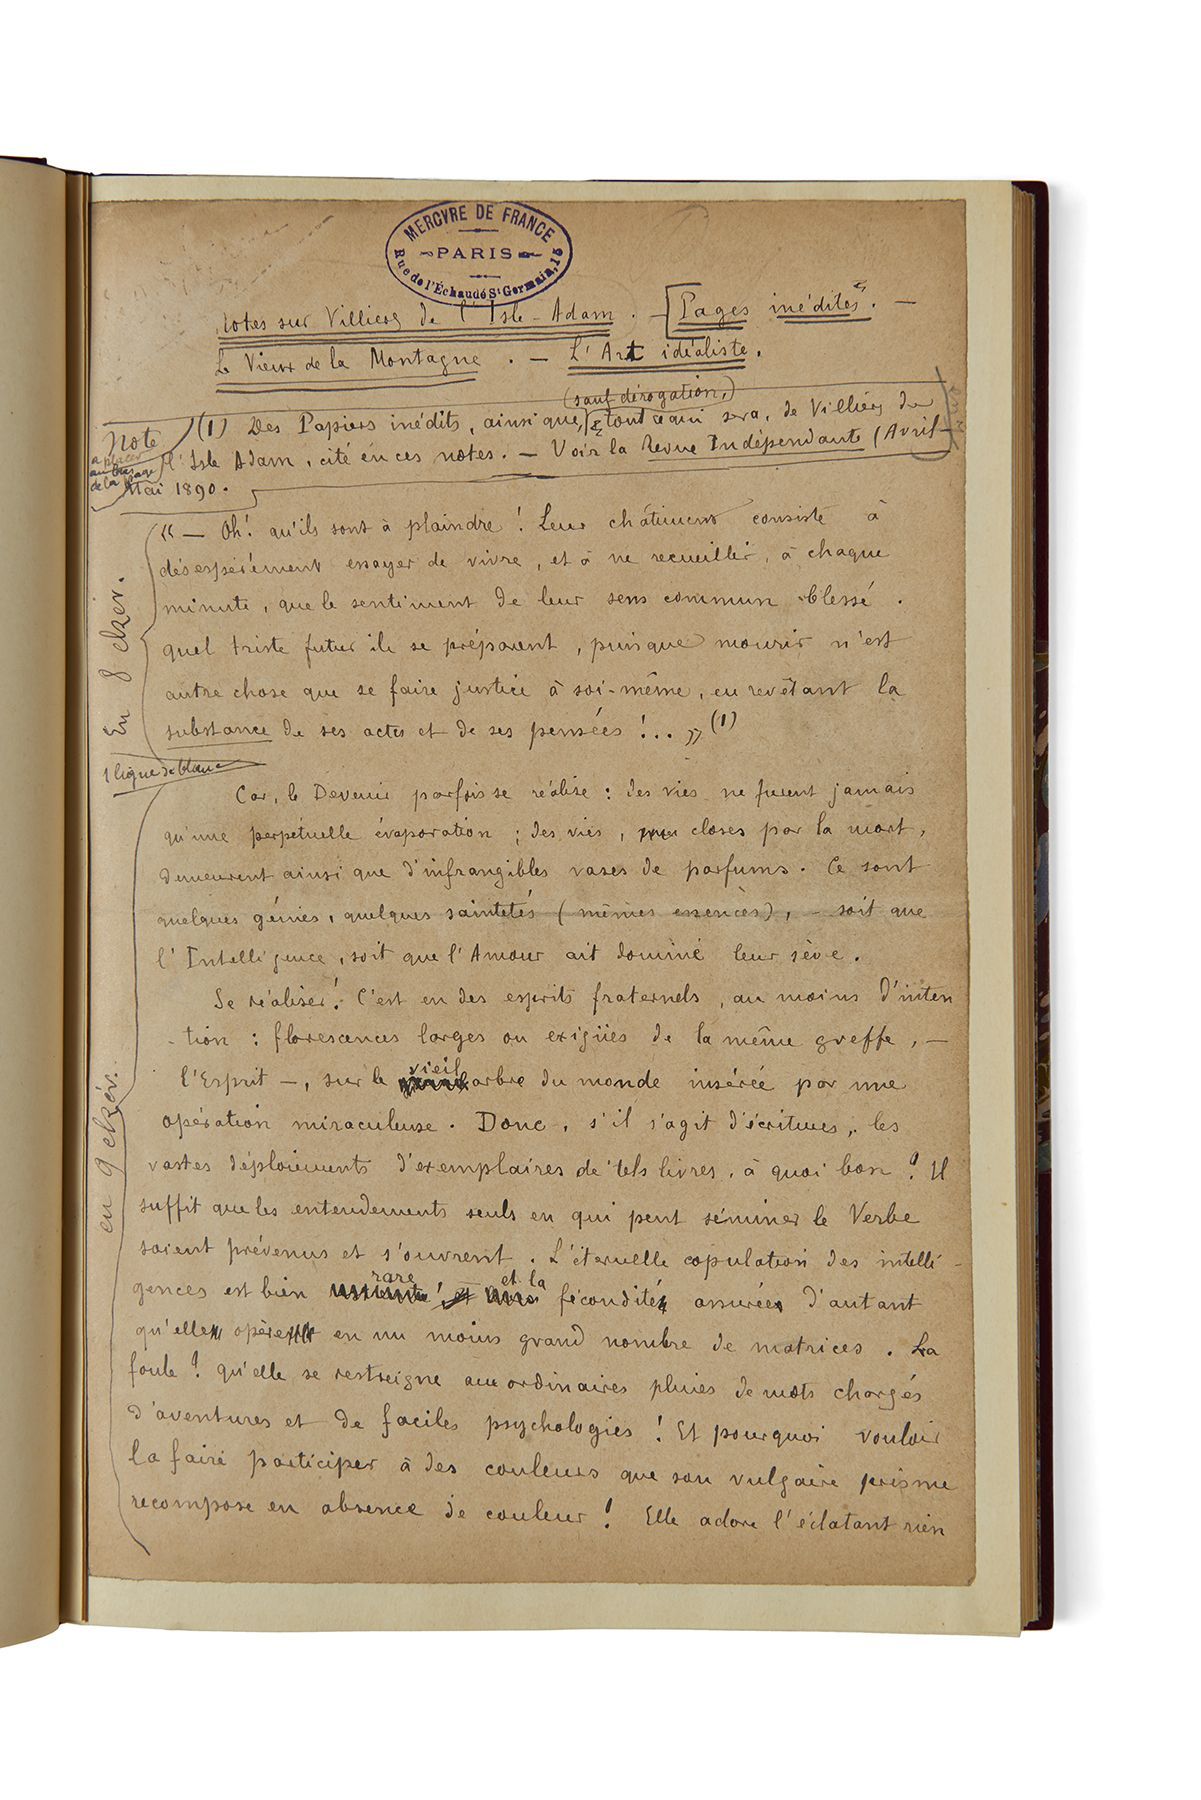 MERCVRE DE FRANCE
PARIS
Rue de l'Échaudé St Germain, 15
Notes sur Villiers de l'Isle-Adam. — [Pages inédites. —
Le Vieux de la Montagne. — L'Art idéaliste.
(sauf dérogation,)
(1) Des Papiers inédits, ainsi que, tout ce qui sera, de Villiers de
l'Isle Adam, cité en ces notes. — Voir la Revue Indépendante (Avril-
Mai 1890.
Note
a placer
au bas
de la page
« — Oh! qu'ils sont à plaindre ! Leur châtiment consiste à
désespérément essayer de vivre, et à ne recueillir, à chaque
minute, que le sentiment de leur sens commun blessé.
quel triste futur ils se préparent, puisque mourir n'est
autre chose que se faire justice à soi-même, en revêtant la
substance de ses actes et de ses pensées !.. » (1)
En 8 elzév.
1 ligne de blanc
Car, le Devenir parfois se réalise : des vies ne furent jamais
qu'une perpétuelle évaporation ; des vies, closes par la mort,
demeurent ainsi que d'infrangibles vases de parfums. Ce sont
quelques génies, quelques saintetés (mêmes essences), — soit que
l'Intelligence, soit que l'Amour ait dominé leur sève.
Se réaliser! C'est en des esprits fraternels, au moins d'inten
-tion : florescences larges ou exigües de la même greffe, —
l'Esprit —, sur le vieil arbre du monde insérée par une
opération miraculeuse. Donc, s'il s'agit d'écritures, les
vastes déploiements d'exemplaires de tels livres, à quoi bon ? Il
suffit que les entendements seuls en qui peut séminer le Verbe
soient prévenus et s'ouvrent. L'éternelle copulation des intelli-
gences est bien rare ! et la fécondité assurée d'autant
qu'elle opère en un moins grand nombre de matrices. La
foule ? qu'elle se restreigne aux ordinaires pluies de mots chargés
d'aventures et de faciles psychologies ! Et pourquoi vouloir
la faire participer à des couleurs que son vulgaire prisme
recompose en absence de couleur ! Elle adore l'éclatant rien
en 9 elzév.